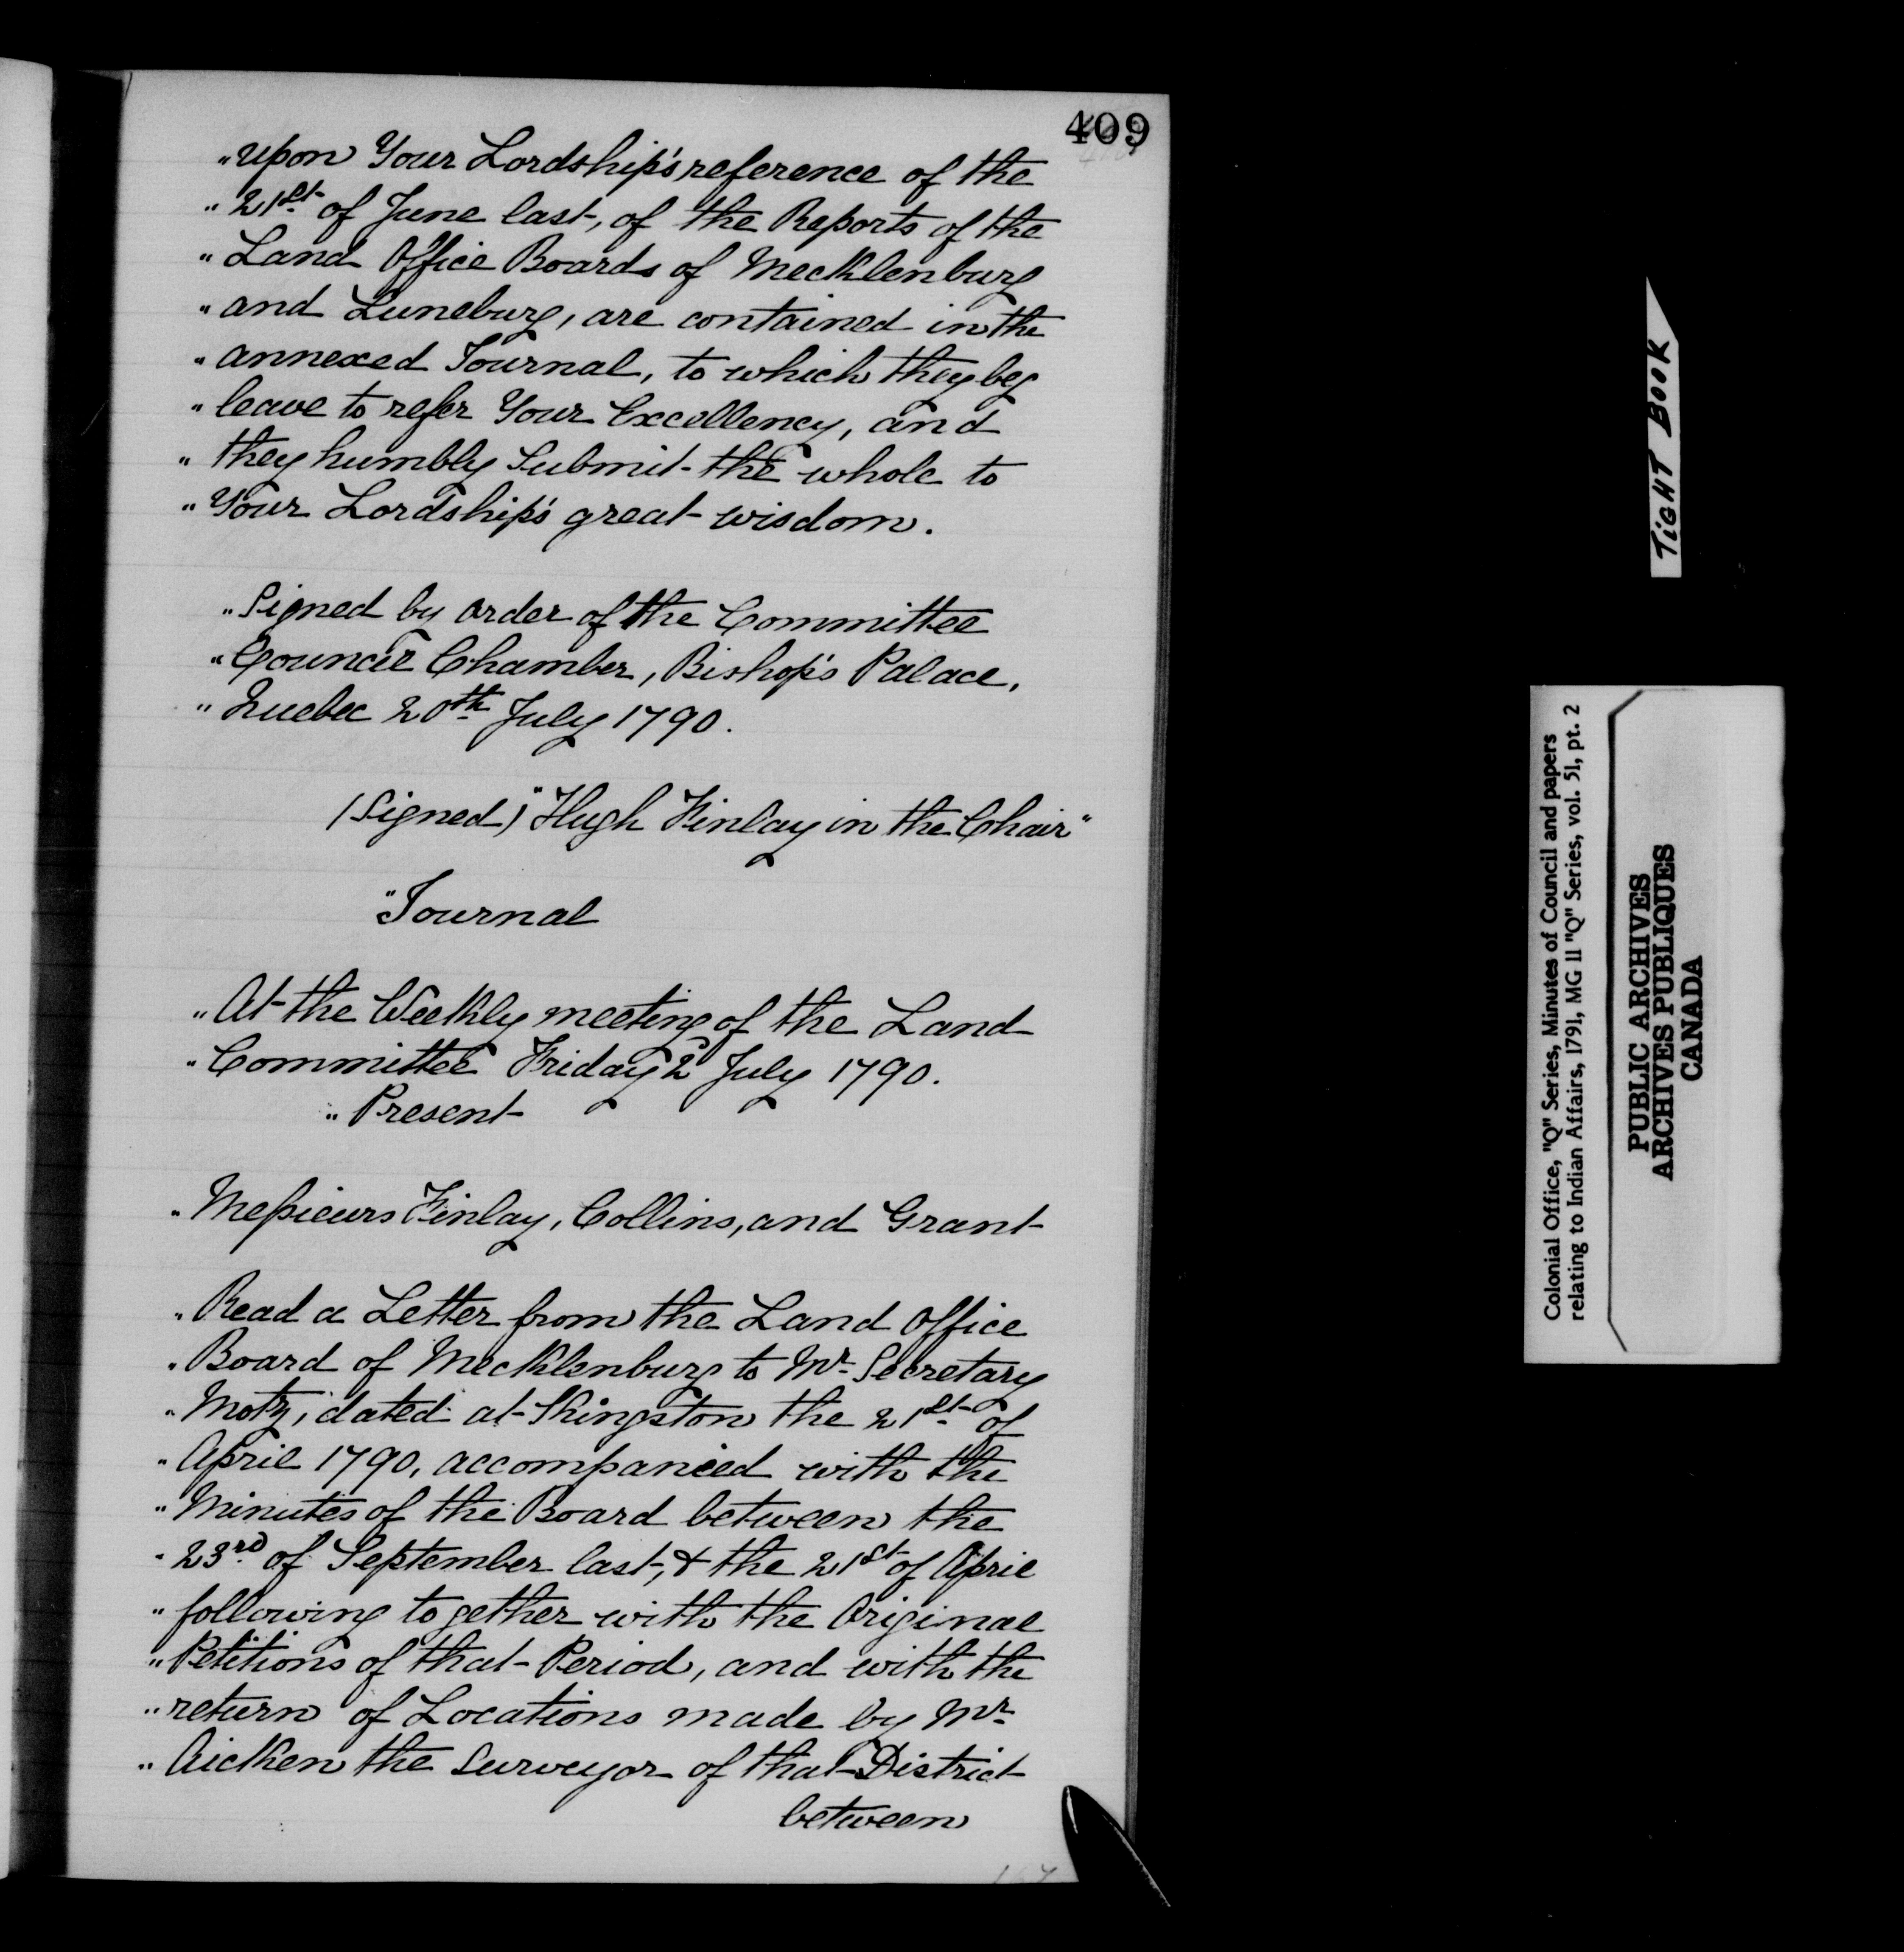 409
"upon Your Lordship's reference of the
"21st of June last, of the Reports of the
"Land Office Boards of Mecklenburg
"and Luneburg, are contained in the
"annexed Journal, to which they beg
"leave to refer Your Excellency, and
"they humbly Submit the whole to
"Your Lordship's great wisdom.
"Signed by order of the Committee
"Council Chamber, Bishop's Palace,
"Quebec 20th July 1790.
(Signed) "Hugh Finlay in the Chair"
"Journal
"At the Weekly meeting of the Land
"Committee Friday 2d July 1790.
"Present
"Messieurs Finlay, Collins, and Grant
"Read a Letter from the Land Office
"Board of Mecklenburg to Mr. Secretary
"Motz, dated at Kingston the 21st of
"April 1790, accompanied with the
"Minutes of the Board between the
"23rd of September last, & the 21st of April
"following together with the Original
"Petitions of that Period, and with the
"return of Locations made by Mr.
"Aicken the Surveyor of that District
between
TiGHT BOOK
Colonial Office, "Q" Series, Minutes of Council and papers
relating to Indian Affairs, 1791, MG 11 "Q" Series, vol. 51, pt. 2
PUBLIC ARCHIVES
ARCHIVES PUBLIQUES
CANADA